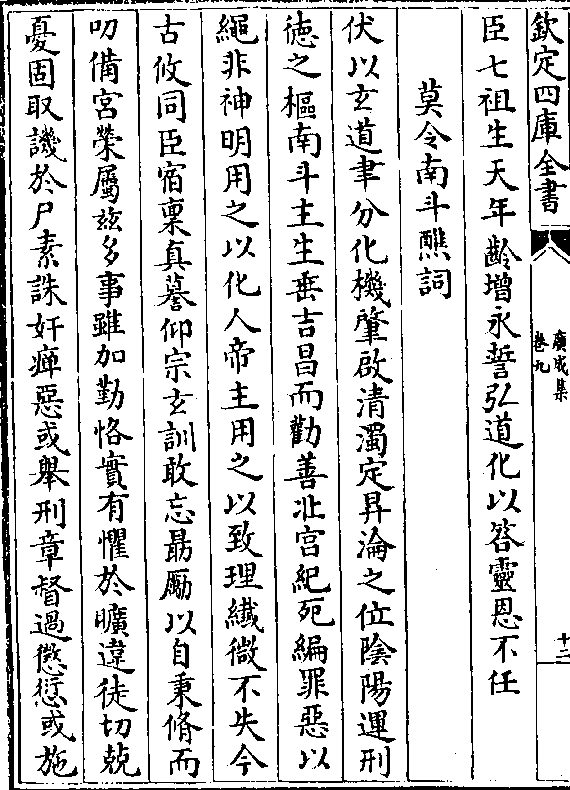 欽定四庫全書
廣成集
卷九
十二
臣七祖生天年齡增永誓弘道化以答靈恩不任
莫令南斗醮詞
伏以玄道聿分化機肇啟清濁定昇淪之位陰陽運刑
德之樞南斗主生垂吉昌而勸善北宮紀死編罪惡以
繩非神明用之以化人帝主用之以致理纖微不失今
古攸同臣宿稟真蓦仰宗玄訓敢忘勗厲以自秉脩而
叨備宮榮屬玆多事雖加勤恪實有懼於曠違徒切兢
憂固取譏於尸素誅奸癉惡或舉刑章督過懲愆或施